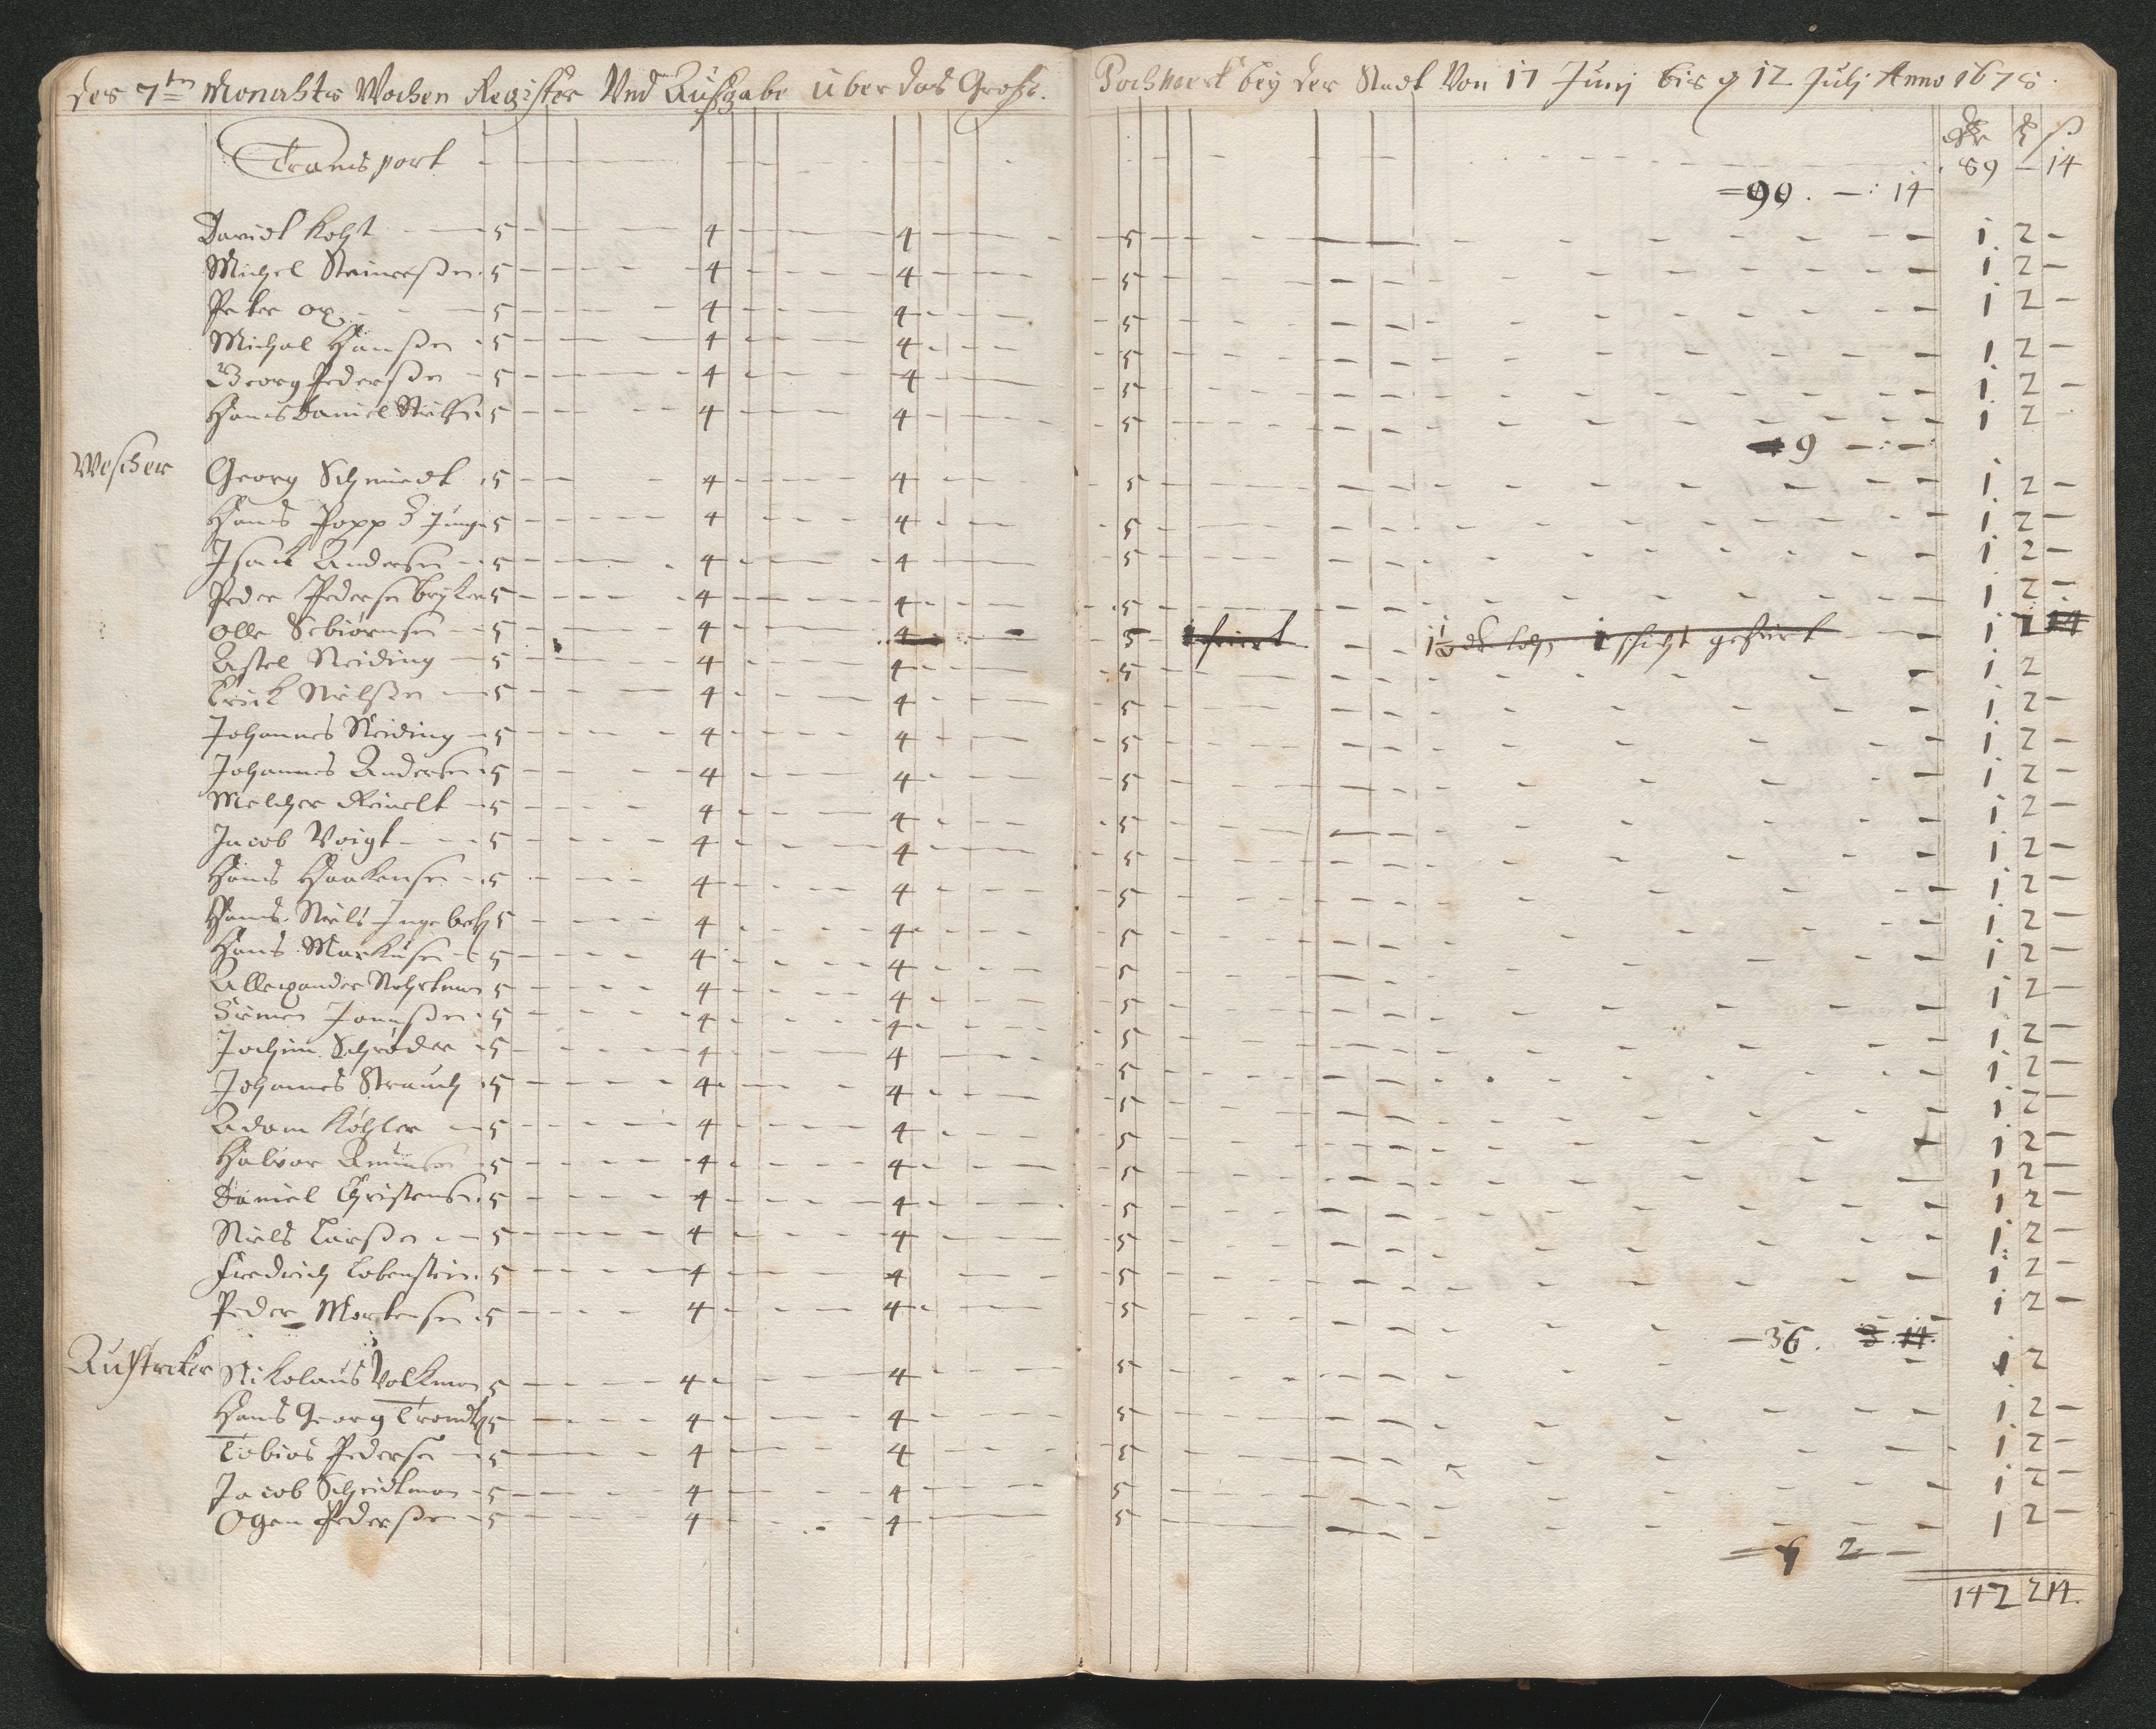 des 7ten Monahts Wochen Register Und Außgabe über das Große. Pochwerk bey der Stadt Von 17 Junij bis d 12 Julj Anno 1678.
Transport - - - 89 - 14
=90. -:- 14
Davidt Koht - 5 - 4 - 4 - 5 - 1. 2 -
Michel Steinersßen. 5 - 4 - 4 - 5 - 1 2 -
Peter Ox - 5 - 4 - 4 - 5 - 1 2 -
Michal Hanßen - 5 - 4 - 4 - 5 - 1 2 -
Georg Pederßen - 5 - 4 - 4 - 5 - 1. 2 -
Hans Daniel Nielsn. 5 - 4 - 4 - 5 - 1 2
9 -:-
Wescher Georg Schmiedt. 5 - 4 - 4 - 5 - 1 2 -
Hans Popp D Junge 5 - 4 - 4 - 5 - 1. 2 -
Isack Andersen - 5 - 4 - 4 - 5 - 1 2 -
Peder Pedersen bryken 5 - 4 - 4 - 5 - 1 2 -
Olle Sebiörnsen - 5 - 4 - 4 - 5 - 1 feiert - schicht gefeirt - 1 1 14
Astel Neiding - 5 - 4 - 4 - 5 - 1 2
Erick Nielßen - 5 - 4 - 4 - 5 - 1 2 -
Johannes Neiding - 5 - 4 - 4 - 5 - 1 2 -
Johannes Andersen. 5 - 4 - 4 - 5 - 1 2 -
Melcher Reinelt - 5 - 4 - 4 - 5 - 1 2 -
Jacob Voigt - 5 - 4 - 4 - 5 - 1 2 -
Hans Haakensen - 5 - 4 - 4 - 5 - 1 2 -
Hans Niels Ingebretz 5 - 4 - 4 - 5 - 1 2 -
Hans Markusen - 5 - 4 - 4 - 5 - 1 2 -
Allexander Nohrtman 5 - 4 - 4 - 5 - 1 2 -
Simen Jonnßen. 5 - 4 - 4 - 5 - 1. 2 -
Jochim Schröder - 5 - 4 - 4 - 5 - 1 2 -
Johannes Strauch. 5 - 4 - 4 - 5 - 1 2 -
Adam Köhler - 5 - 4 - 4 - 5 - 1 2 -
Halvor Amunsen 5 - 4 - 4 - 5 - 1 2 -
Daniel Christensen. 5 - 4 - 4 - 5 - 1 2 -
Niels Larßen - 5 - 4 - 4 - 5 - 1. 2 -
Fredrich Lobenstein. 5 - 4 - 4 - 5 - 1 2 -
Peder Mortensen. 5 - 4 - 4 - 5 - 1 2 -
-36. 3 14.
Außtreker Nikolaus Volkman 5 - 4 - 4 - 5 - 1 2
Hans Georg 5 - 4 - 4 - 5 - 1. 2 -
Tobias Pedersen - 5 - 4 - 4 - 5 - 1 2 -
Jacob Scheidtman - 5 - 4 - 4 - 5 - 1 2 -
Ogen Pederßen - 5 - 4 - 4 - 5 - 1 2 -
= 2 -
142 2 14.